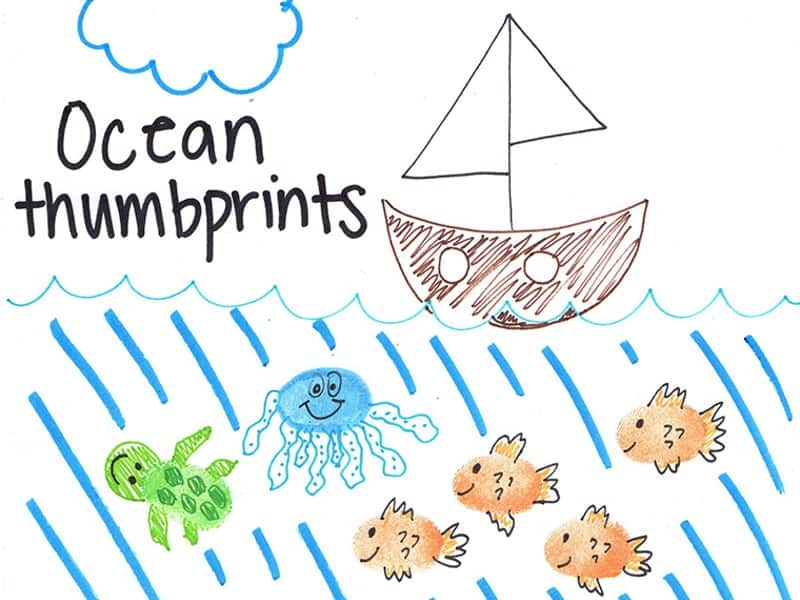 Ocean
thumbprints